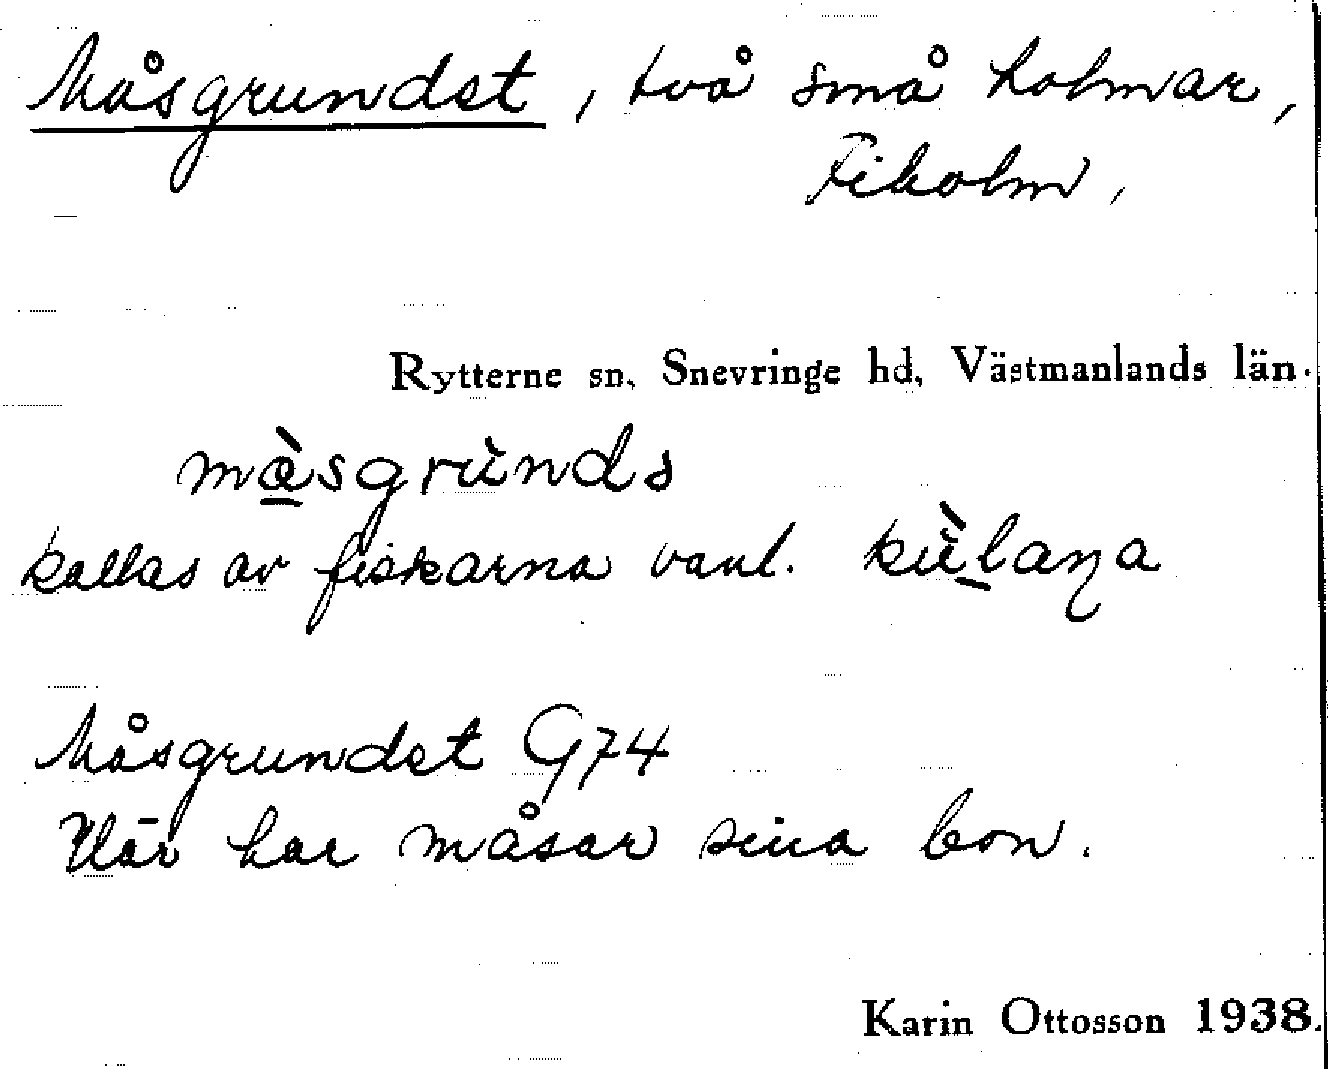 Måsgrundet, två små holmar,
Fiholm,
Rytterne sn, Snevringe hd, Västmanlands län.
mɑ̀sgrùnds
kallas av fiskarna vanl. kùlaɳa
Måsgrundet G74
Här har måsar sina bon.
Karin Ottosson 1938.